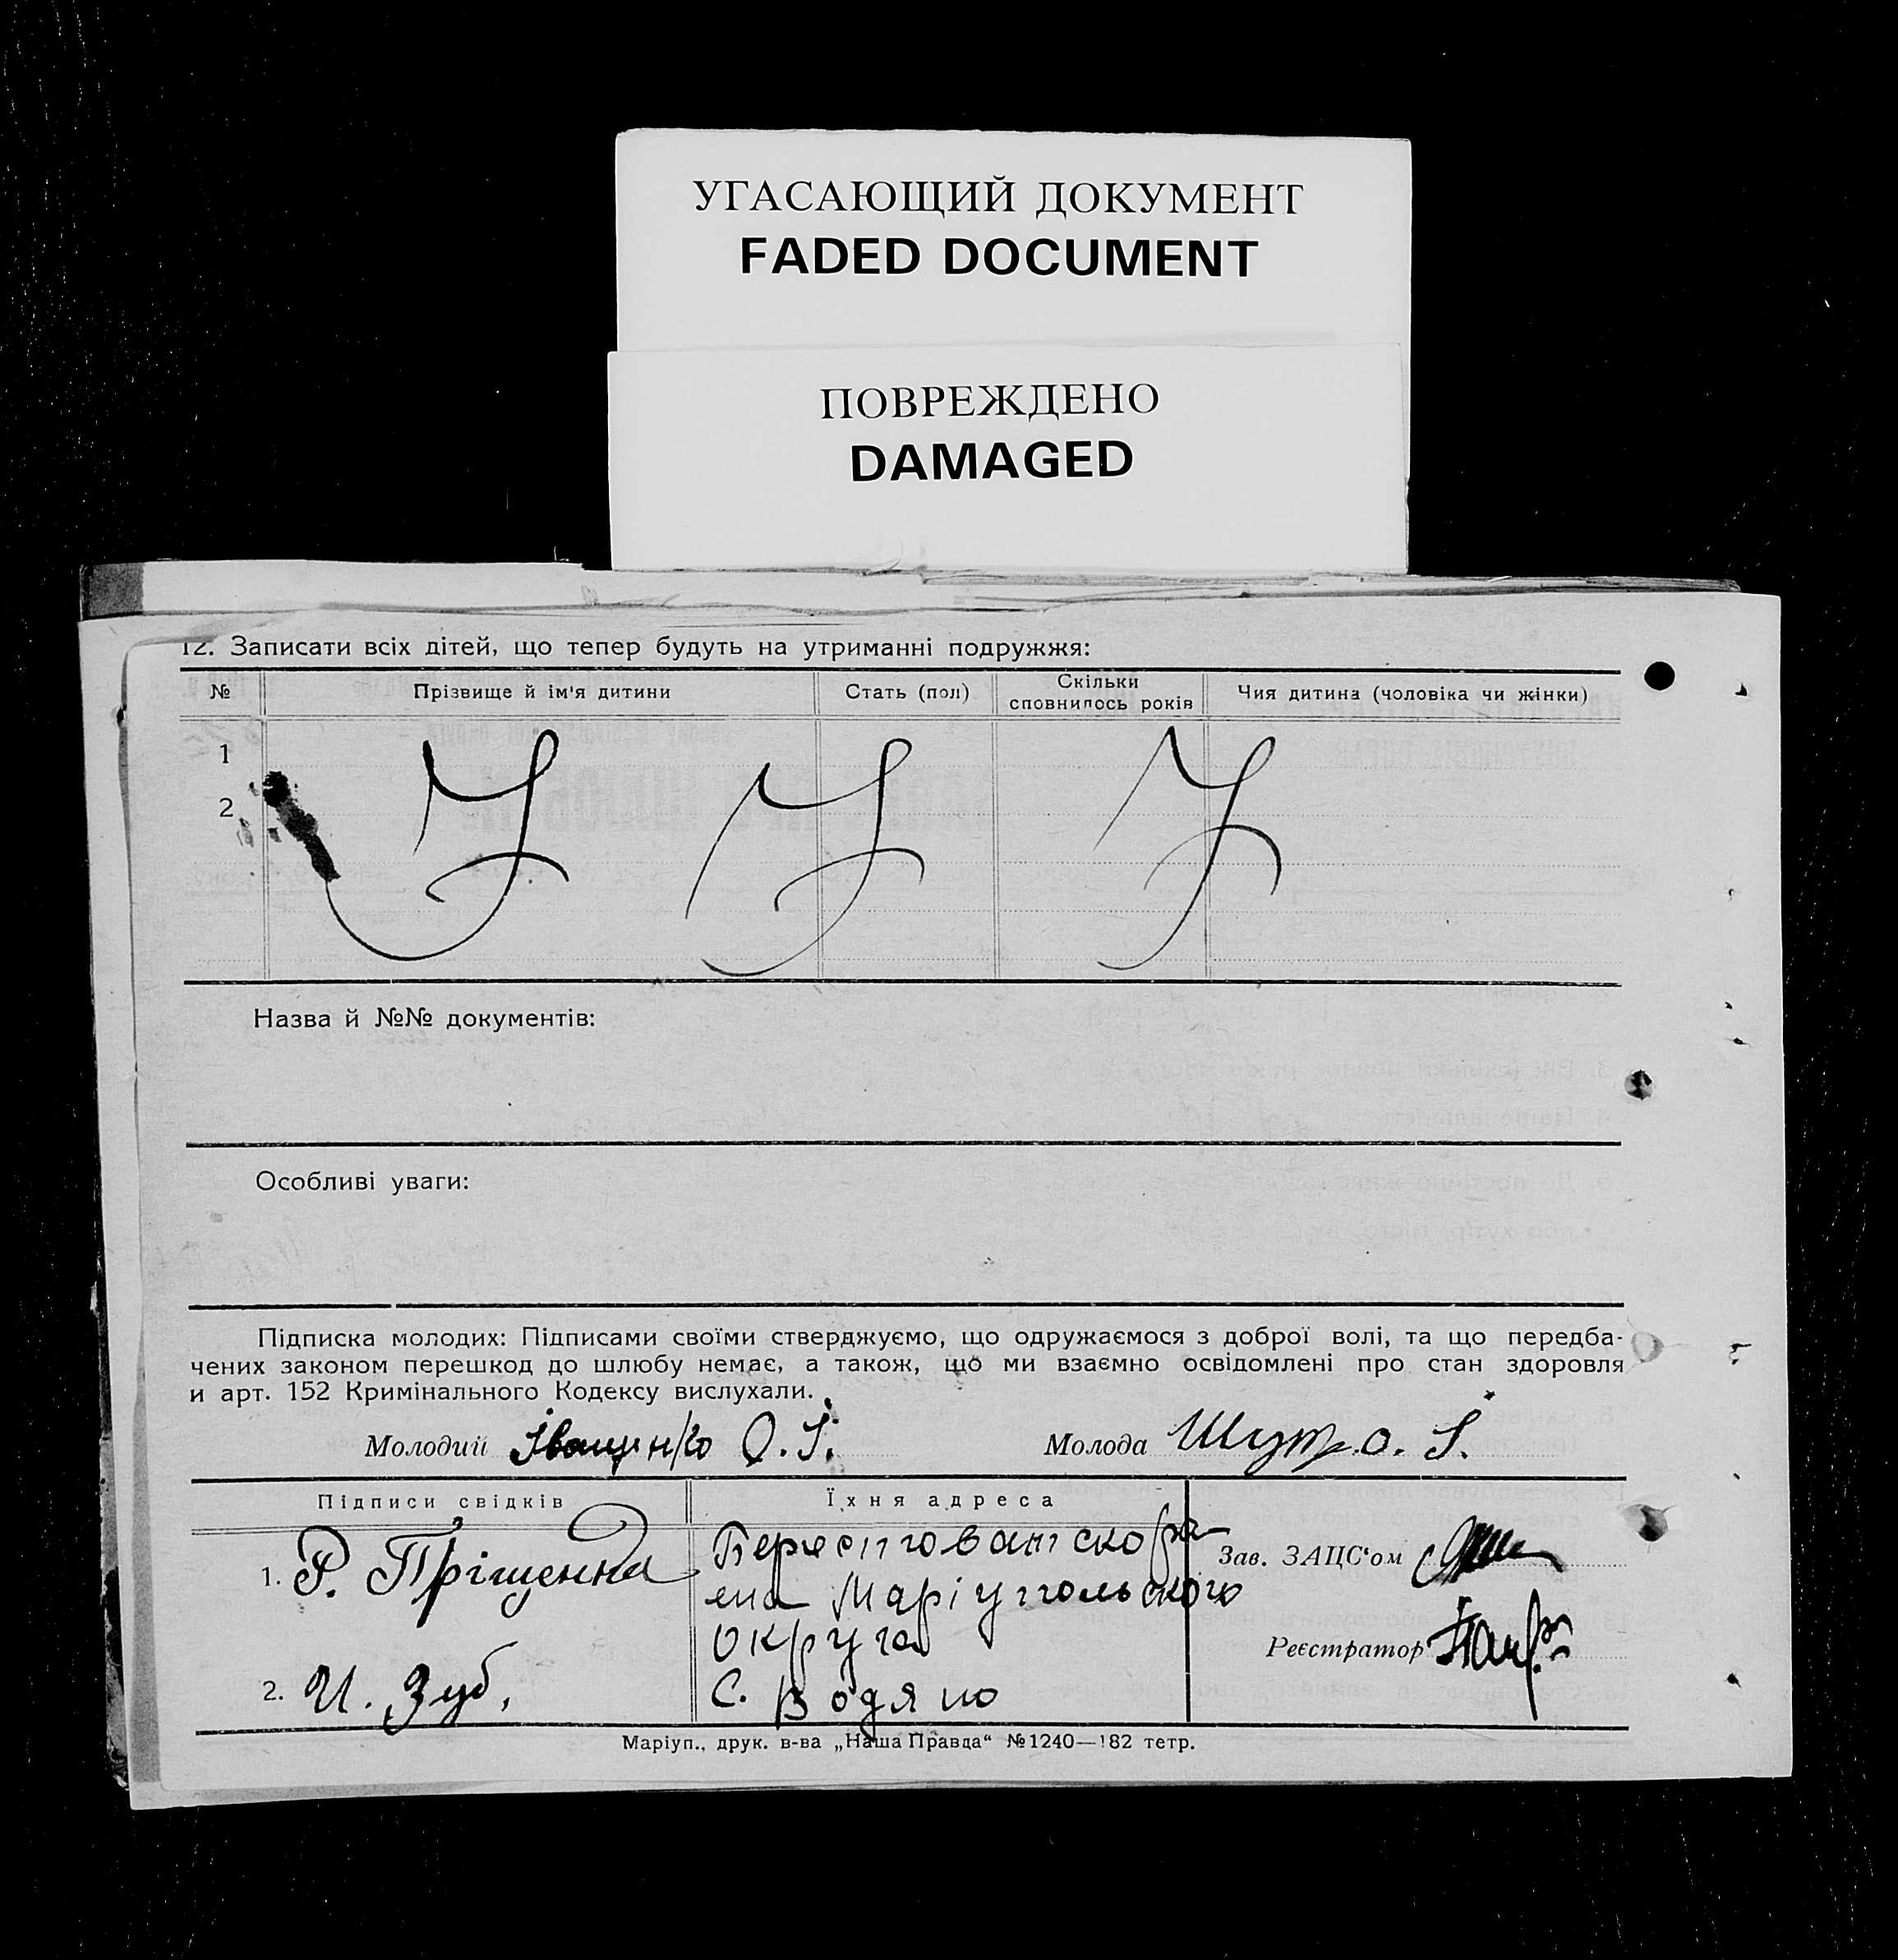 УГАСАЮЩИЙ ДОКУМЕНТ
FADED DOCUMENT
ПОВРЕЖДЕНО
DAMAGED
12. Записати всіх дітей, що тепер будуть на утриманні подружжя:
№ Прізвище й ім'я дитини Стать (пол) Скільки сповнилось років Чия дитина (чоловіка чи жінки)
1
2
Назва й №№ документів:
Особливі уваги:
Підписка молодих: Підписами своїми стверджуємо, що одружаємося з доброї волі, та що передба-
чених законом перешкод до шлюбу немає, а також, що ми взаємно освідомлені про стан здоровля
и арт. 152 Кримінального Кодексу вислухали.
Молодий Іващенко О. І. Молода
Підписи свідків Їхня адреса
1. Р. Маріупольского Зав. ЗАЦС'ом
округа Реєстратор
2. И. Зуб. С. Водяно
Маріуп., друк. в-ва „Наша Правда“ №1240—182 тетр.